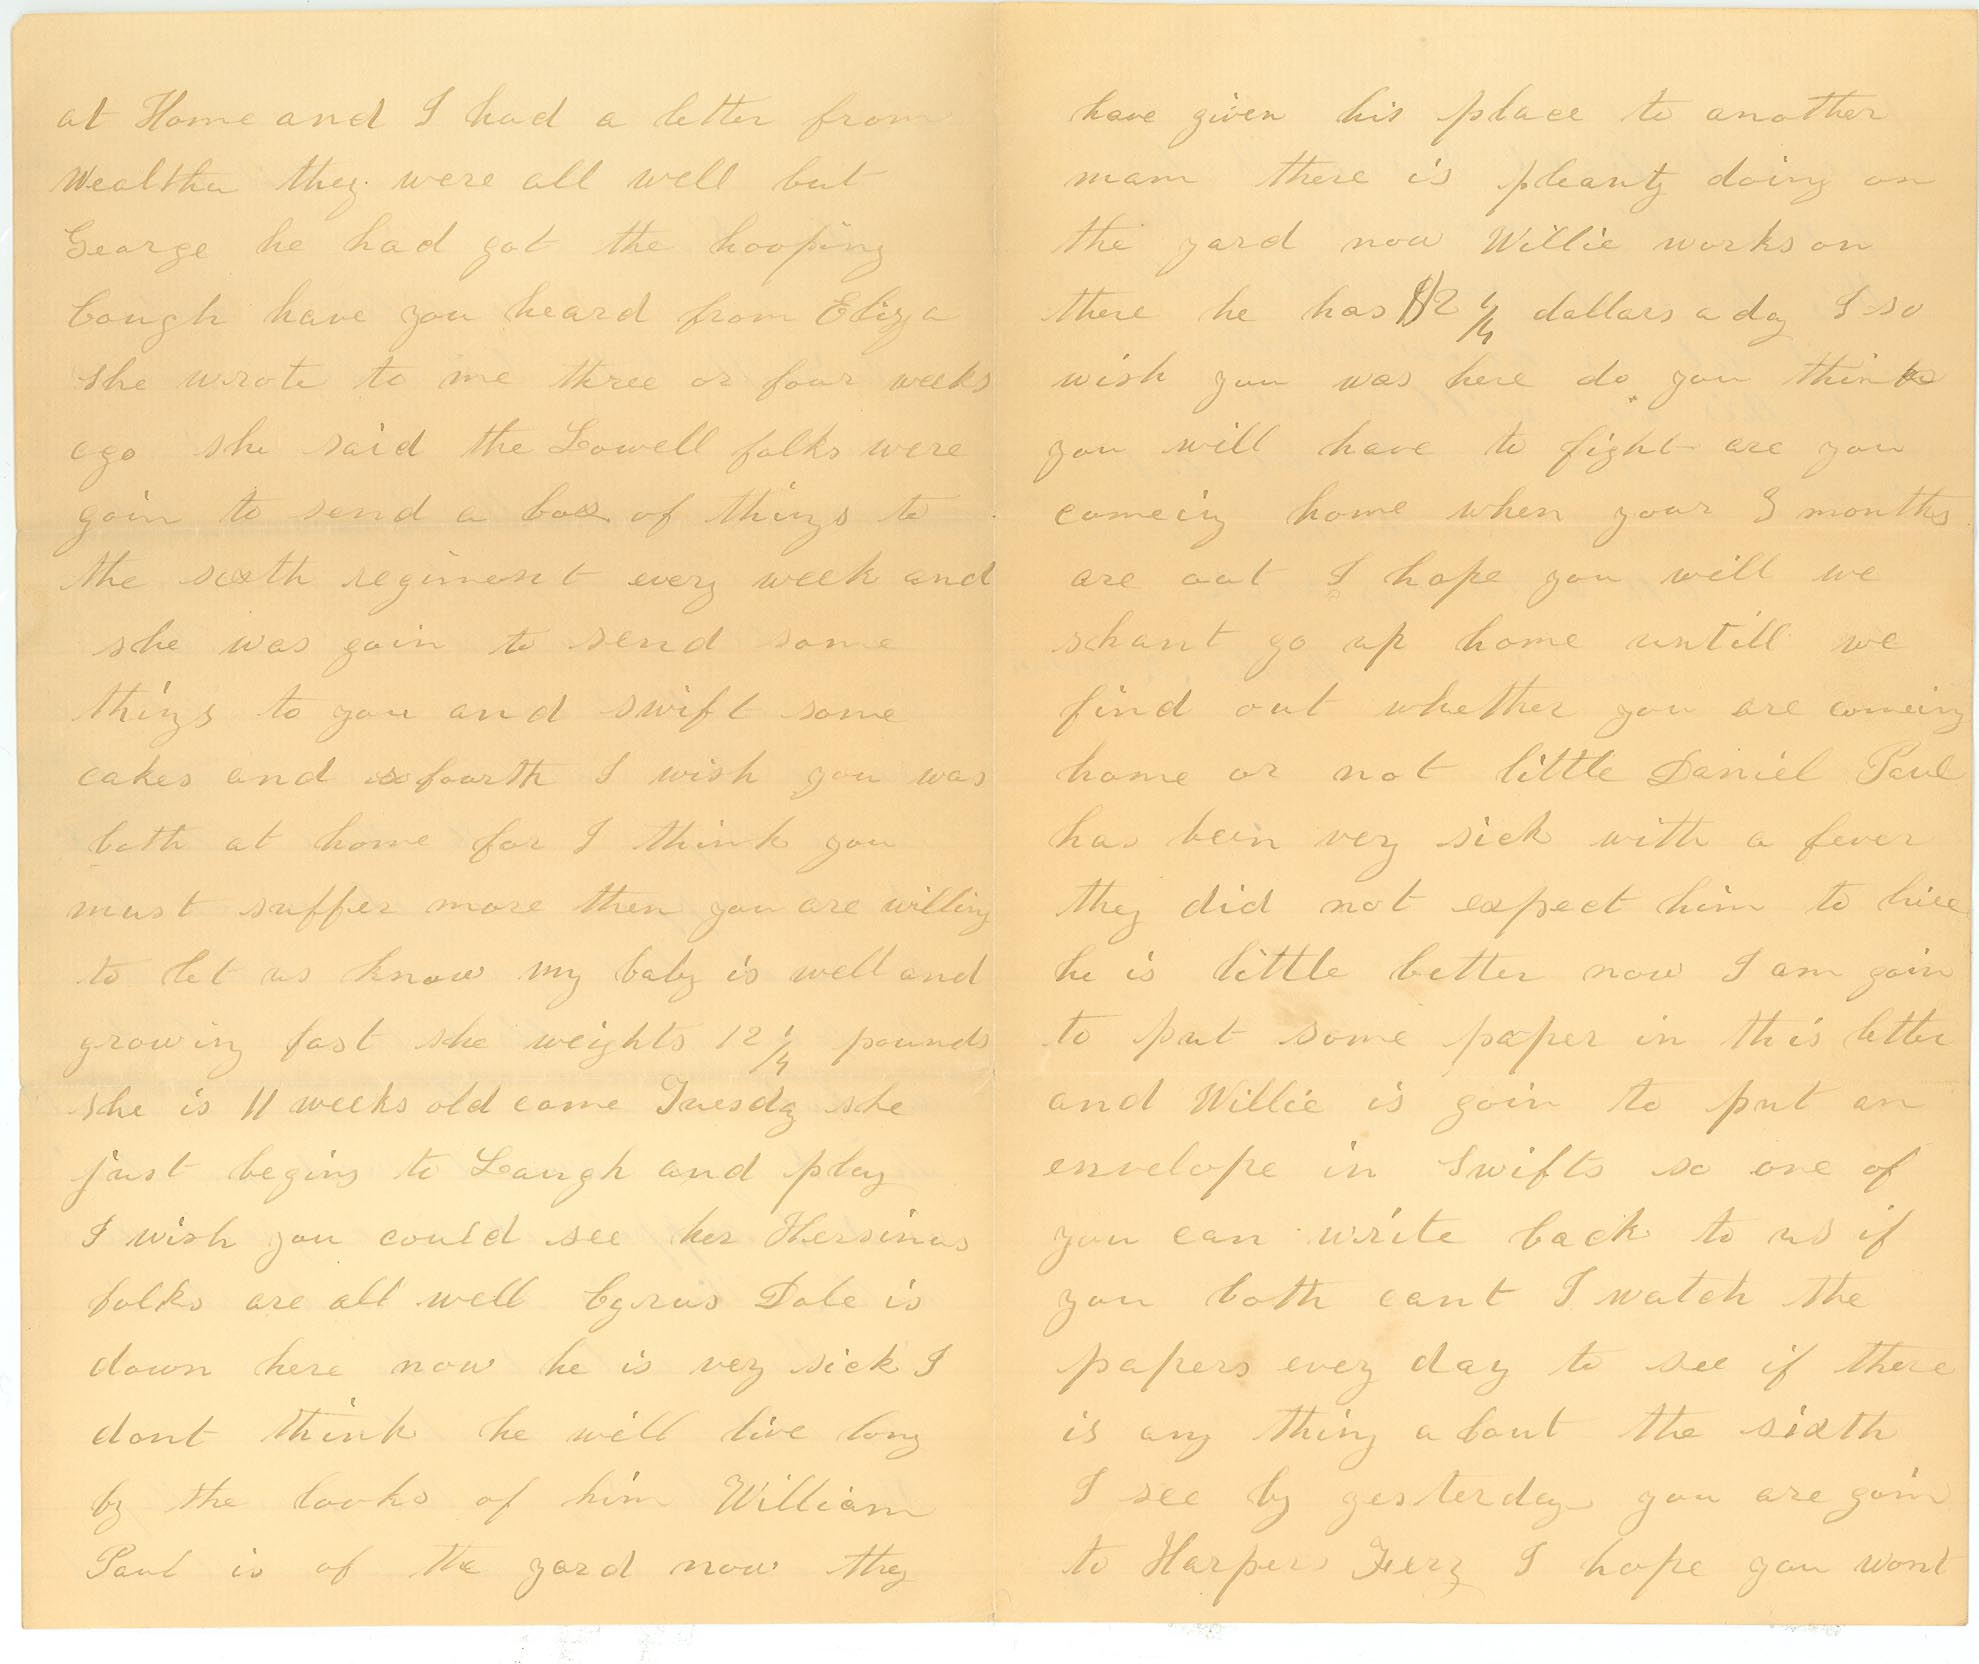 at Home and I had a letter from
Wealtha they were all well but
George he had got the hooping
Cough have you heard from Eliza
she wrote to me three or four weeks
ago she said the Lowell folks were
goin to send a box of things to
the sixth regiment every week and
she was goin to send some
things to you and swift some
cakes and so fourth I wish you was
both at home for I think you
must suffer more then you are willing
to let us know my baby is well and
growing fast she weights 12 1/4 pounds
she is 11 weeks old come Tuesday she
just begins to Laugh and play
I wish you could see her Hersinus
folks are all well Cyrus Dole is
down here now he is very sick I
dont think he will live long
by the looks of him William
Paul is of the yard now they
have given his place to another
mam there is pleanty doing on
the yard now Willie works on
there he has $2 1/4 dollars a day I so
wish you was here do you think
you will have to fight are you
comeing home when your 3 months
are out I hope you will we
shant go up home untill we
find out whether you are comeing
home or not little Daniel Paul
has been very sick with a fever
they did not expect him to live
he is little better now I am goin
to put some paper in this letter
and Willie is goin to put an
envelope in Swifts so one of
you can write back to us if
you both cant I watch the
papers every day to see if there
is any thing about the sixth
I see by yesterday you are goin
to Harpers Ferry I hope you wont